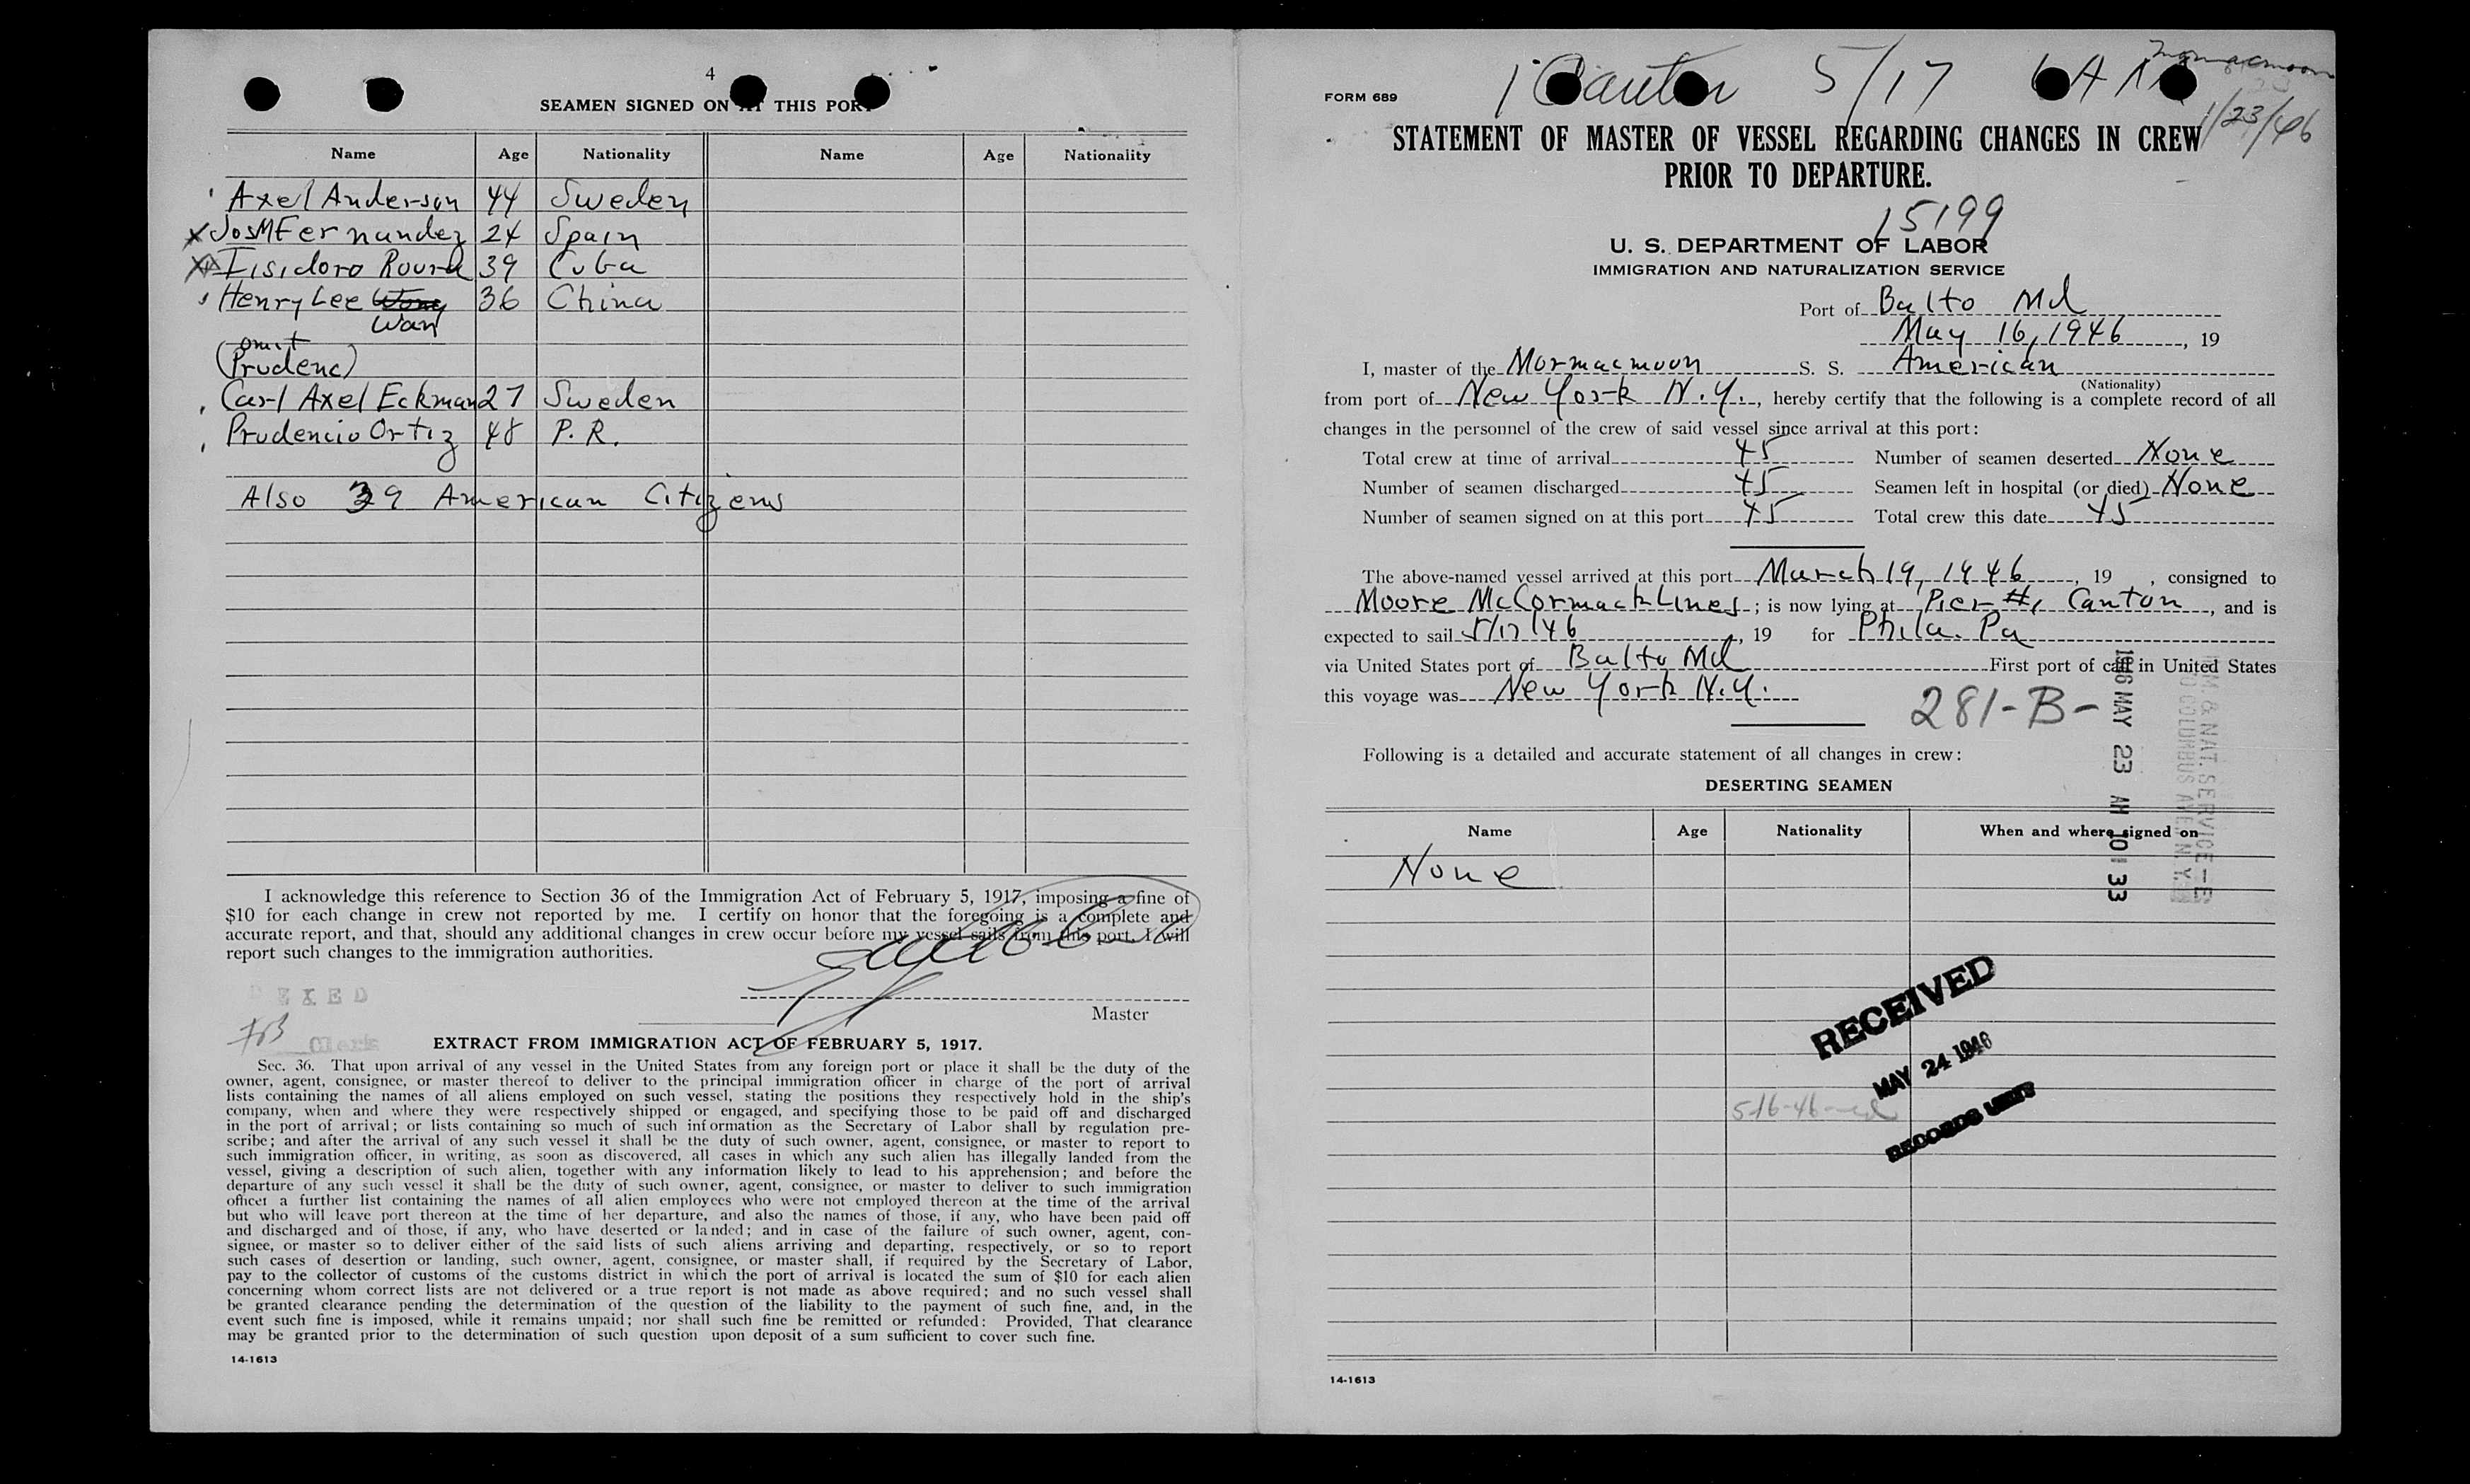 4
SEAMEN SIGNED ON AT THIS PORT
Name Age Nationality Name Age Nationality
Axel Anderson 44 Sweden
X Jos M Fernandez 24 Spain
X Iisidoro Rourd 39 Cuba
Henry Lee Wong 36 China
Wan
omit
(Prudenc)
Carl Axel Eckman 27 Sweden
Prudencio Ortiz 48 P. R.
Also 39 American Citizens
I acknowledge this reference to Section 36 of the Immigration Act of February 5, 1917, imposing a fine of
$10 for each change in crew not reported by me. I certify on honor that the foregoing is a complete and
accurate report, and that, should any additional changes in crew occur before my vessel sails from this port, I will
report such changes to the immigration authorities.
EXED
Master
Clerk
EXTRACT FROM IMMIGRATION ACT OF FEBRUARY 5, 1917.
Sec. 36. That upon arrival of any vessel in the United States from any foreign port or place it shall be the duty of the
owner, agent, consignee, or master thereof to deliver to the principal immigration officer in charge of the port of arrival
lists containing the names of all aliens employed on such vessel, stating the positions they respectively hold in the ship's
company, when and where they were respectively shipped or engaged, and specifying those to be paid off and discharged
in the port of arrival; or lists containing so much of such information as the Secretary of Labor shall by regulation pre-
scribe; and after the arrival of any such vessel it shall be the duty of such owner, agent, consignee, or master to report to
such immigration officer, in writing, as soon as discovered, all cases in which any such alien has illegally landed from the
vessel, giving a description of such alien, together with any information likely to lead to his apprehension; and before the
departure of any such vessel it shall be the duty of such owner, agent, consignee, or master to deliver to such immigration
officer a further list containing the names of all alien employees who were not employed thereon at the time of the arrival
but who will leave port thereon at the time of her departure, and also the names of those, if any, who have been paid off
and discharged and of those, if any, who have deserted or landed; and in case of the failure of such owner, agent, con-
signee, or master so to deliver either of the said lists of such aliens arriving and departing, respectively, or so to report
such cases of desertion or landing, such owner, agent, consignee, or master shall, if required by the Secretary of Labor,
pay to the collector of customs of the customs district in which the port of arrival is located the sum of $10 for each alien
concerning whom correct lists are not delivered or a true report is not made as above required; and no such vessel shall
be granted clearance pending the determination of the question of the liability to the payment of such fine, and, in the
event such fine is imposed, while it remains unpaid; nor shall such fine be remitted or refunded: Provided, That clearance
may be granted prior to the determination of such question upon deposit of a sum sufficient to cover such fine.
14-1613
1 Canton 5/17 6 AM Mormacmoon
1/23/46
FORM 689
STATEMENT OF MASTER OF VESSEL REGARDING CHANGES IN CREW
PRIOR TO DEPARTURE.
15199
U. S. DEPARTMENT OF LABOR
IMMIGRATION AND NATURALIZATION SERVICE
Port of Balto Md
May 16, 1946, 19
I, master of the Mormacmoon S. S. American
(Nationality)
from port of New York N.Y., hereby certify that the following is a complete record of all
changes in the personnel of the crew of said vessel since arrival at this port:
Total crew at time of arrival 45 Number of seamen deserted None
Number of seamen discharged 45 Seamen left in hospital (or died) None
Number of seamen signed on at this port 45 Total crew this date 45
The above-named vessel arrived at this port March 19, 1946, 19 , consigned to
Moore McCormack Lines; is now lying at Pier #1 Canton, and is
expected to sail 5/17/46, 19 for Phila. Pa
via United States port of Balto Md First port of call in United States
this voyage was New York N.Y.
281-B-
1946 MAY 23 AM 10 33
IM. & NAT. SERVICE-E
70 COLUMBUS AVE. N. Y.
Following is a detailed and accurate statement of all changes in crew:
DESERTING SEAMEN
Name Age Nationality When and where signed on
None
RECEIVED
MAY 24 1946
RECORDS UNIT
5-16-46
14-1613